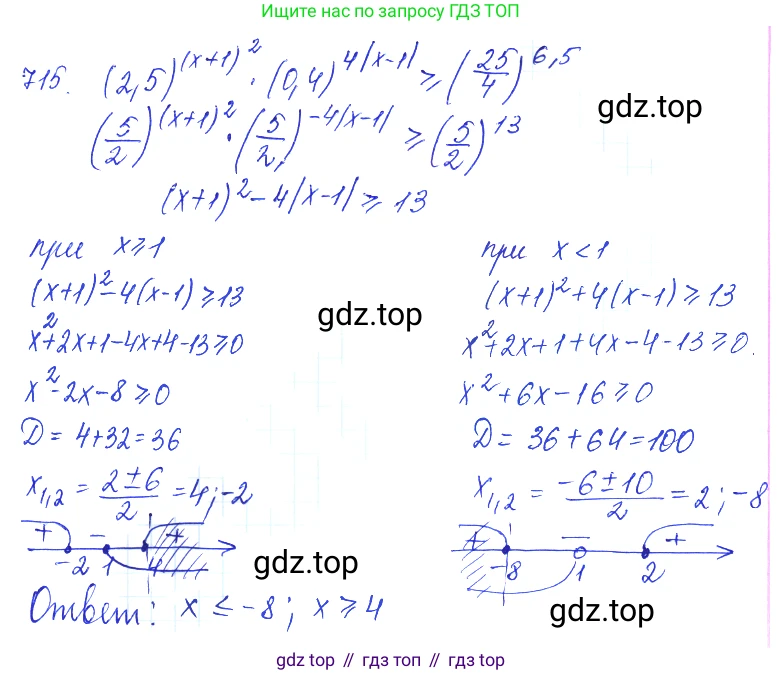 Ищите нас по запросу ГДЗ ТОП
715. (2,5)^(x+1)^2 · (0,4)^4|x-1| ≥ (25/4)^6,5
gdz.top
(5/2)^(x+1)^2 · (5/2)^-4|x-1| ≥ (5/2)^13
(x+1)^2 - 4|x-1| ≥ 13
при x≥1
(x+1)^2 - 4(x-1) ≥ 13
x^2+2x+1-4x+4-13≥0
x^2-2x-8≥0
D = 4+32=36
x1,2 = (2±6)/2 = 4; -2
+ - +
-2 1 4
при x<1
(x+1)^2+4(x-1)≥13
x^2+2x+1+4x-4-13≥0.
x^2+6x-16≥0
D = 36+64=100
x1,2 = (-6±10)/2 = 2; -8
+ - +
-8 1 2
gdz.top
gdz.top
gdz.top
Ответ: x ≤ -8; x ≥ 4
gdz top // гдз топ // gdz top